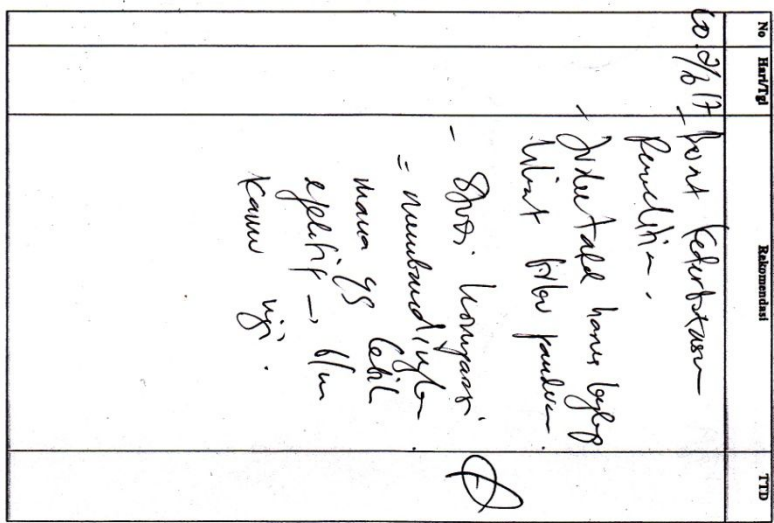 No Hari/Tgl Rekomendasi TTD
- buat keterbatasan
penelitian.
- harus lengkap
lihat buku panduan.
- Studi komparasi
= membandingkan
mana yg lebih
efektif → blm
kamu uji.